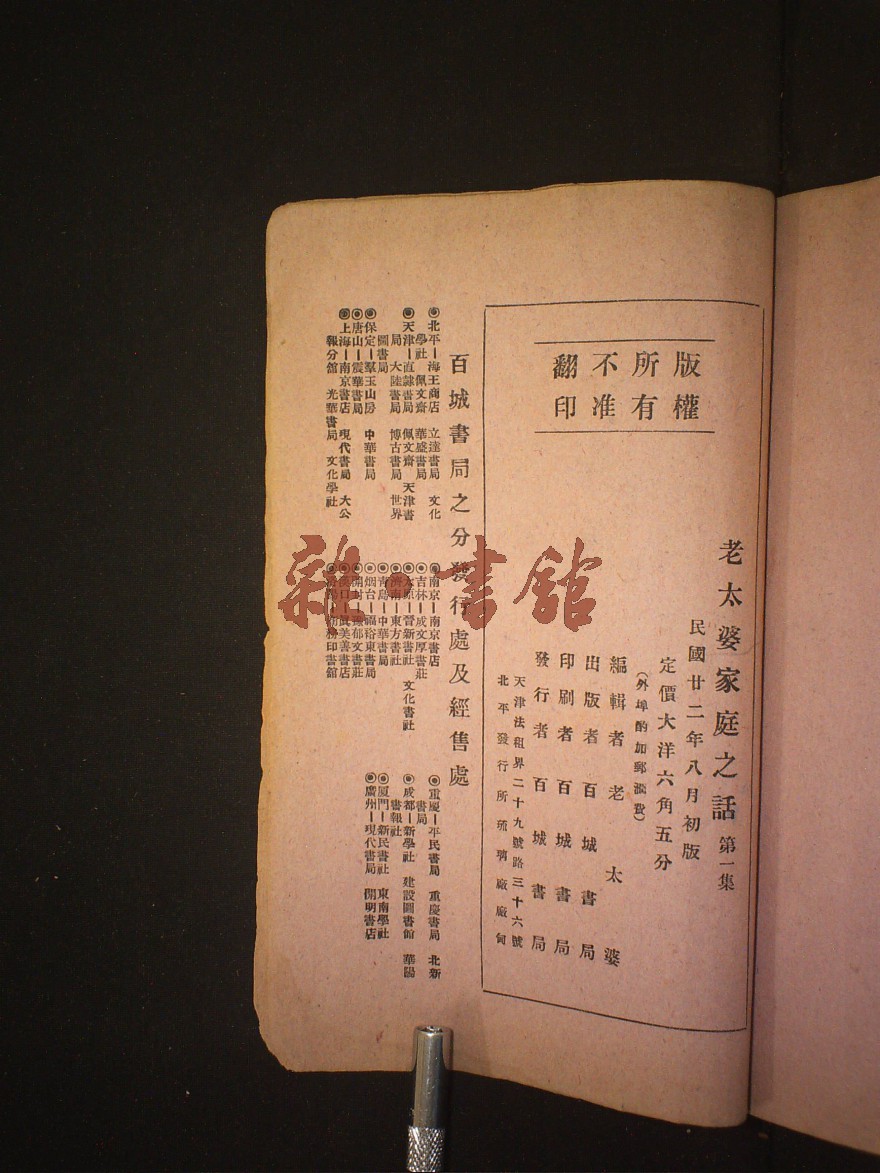 版權
所有
不准
翻印
老太婆家庭之話 第一集
民國廿二年八月初版
定價大洋六角五分
(外埠酌加郵滙費)
編輯者 老太婆
出版者 百城書局
印刷者 百城書局
發行者 百城書局
天津法租界二十九號路三十六號
北平發行所琉璃廠廠甸
百城書局之分發行處及經售處
◉北平－海王商店 立達書局 文化
學社 佩文齋 華盛書局
◉天津－直隸書局 佩文齋 天津書
局 大陸書局 博古書局 世界
圖書局
◉保定－羣玉山房 中華書局
◉唐山－震華書局
◉上海－南京書店 現代書局 大公
報分館 光華書局 文化學社
◉南京－南京書店
◉吉林－成文厚書莊
◉太原－晉新書社 文化書社
◉濟南－東方書社
◉青島－中華書局
◉烟台－福裕東書局
◉開封－郁文書莊
◉漢口－真美善書店
務印書館
◉重慶－平民書局 重慶書局 北新
書局
◉成都－新學社 建設圖書館 華陽
書報社
◉厦門－新民書社 東南學社
◉廣州－現代書局 開明書店
雜·書館